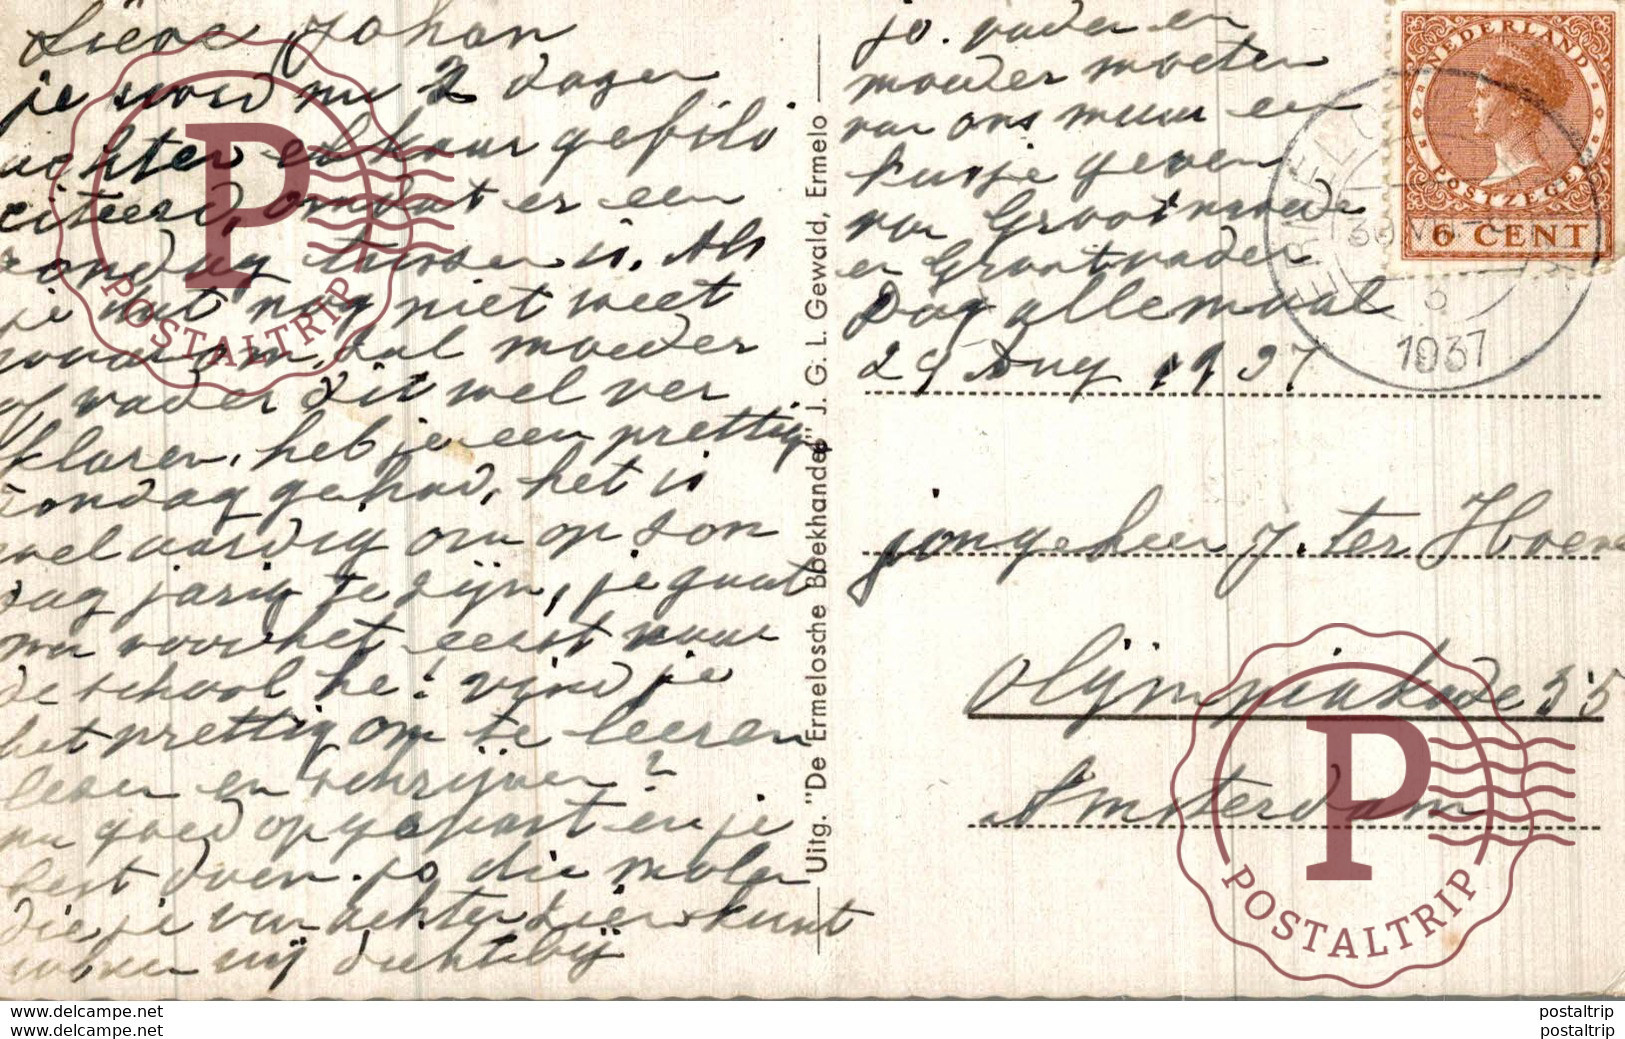 Lieve Johan
je word nu 2 dagen
achter elkaar gefili
citeerd, omdat er een
zondag tussen is. Als
je dat nog niet weet
waarom, zal moeder
of vader dit wel ver
klaren, heb je een prettig
zondag gehad, het is
wel aardig om op zon
dag jarig te zijn, je gaat
nu voor het eerst naar
de school he! vind je
het prettig om te leeren
lezen en schrijven?
nu goed opgepast en je
best doen. jo die molen
die je van achter zien kunt
wonen wij dicht bij
jo. vader en
moeder moeten
van ons maar een
kusje geven
van Grootmoeder
en Grootvader
Dag allemaal
29 Aug 1937
jongeheer J. ter Hoeve
Olijmpiakade 55
Amsterdam
Uitg. "De Ermelosche Boekhandel" J. G. L. Gewald, Ermelo
NEDERLAND
POSTZEGEL
6 CENT
ERMELO
1937
P
POSTALTRIP
P
POSTALTRIP
postaltrip
postaltrip
postaltrip
postaltrip